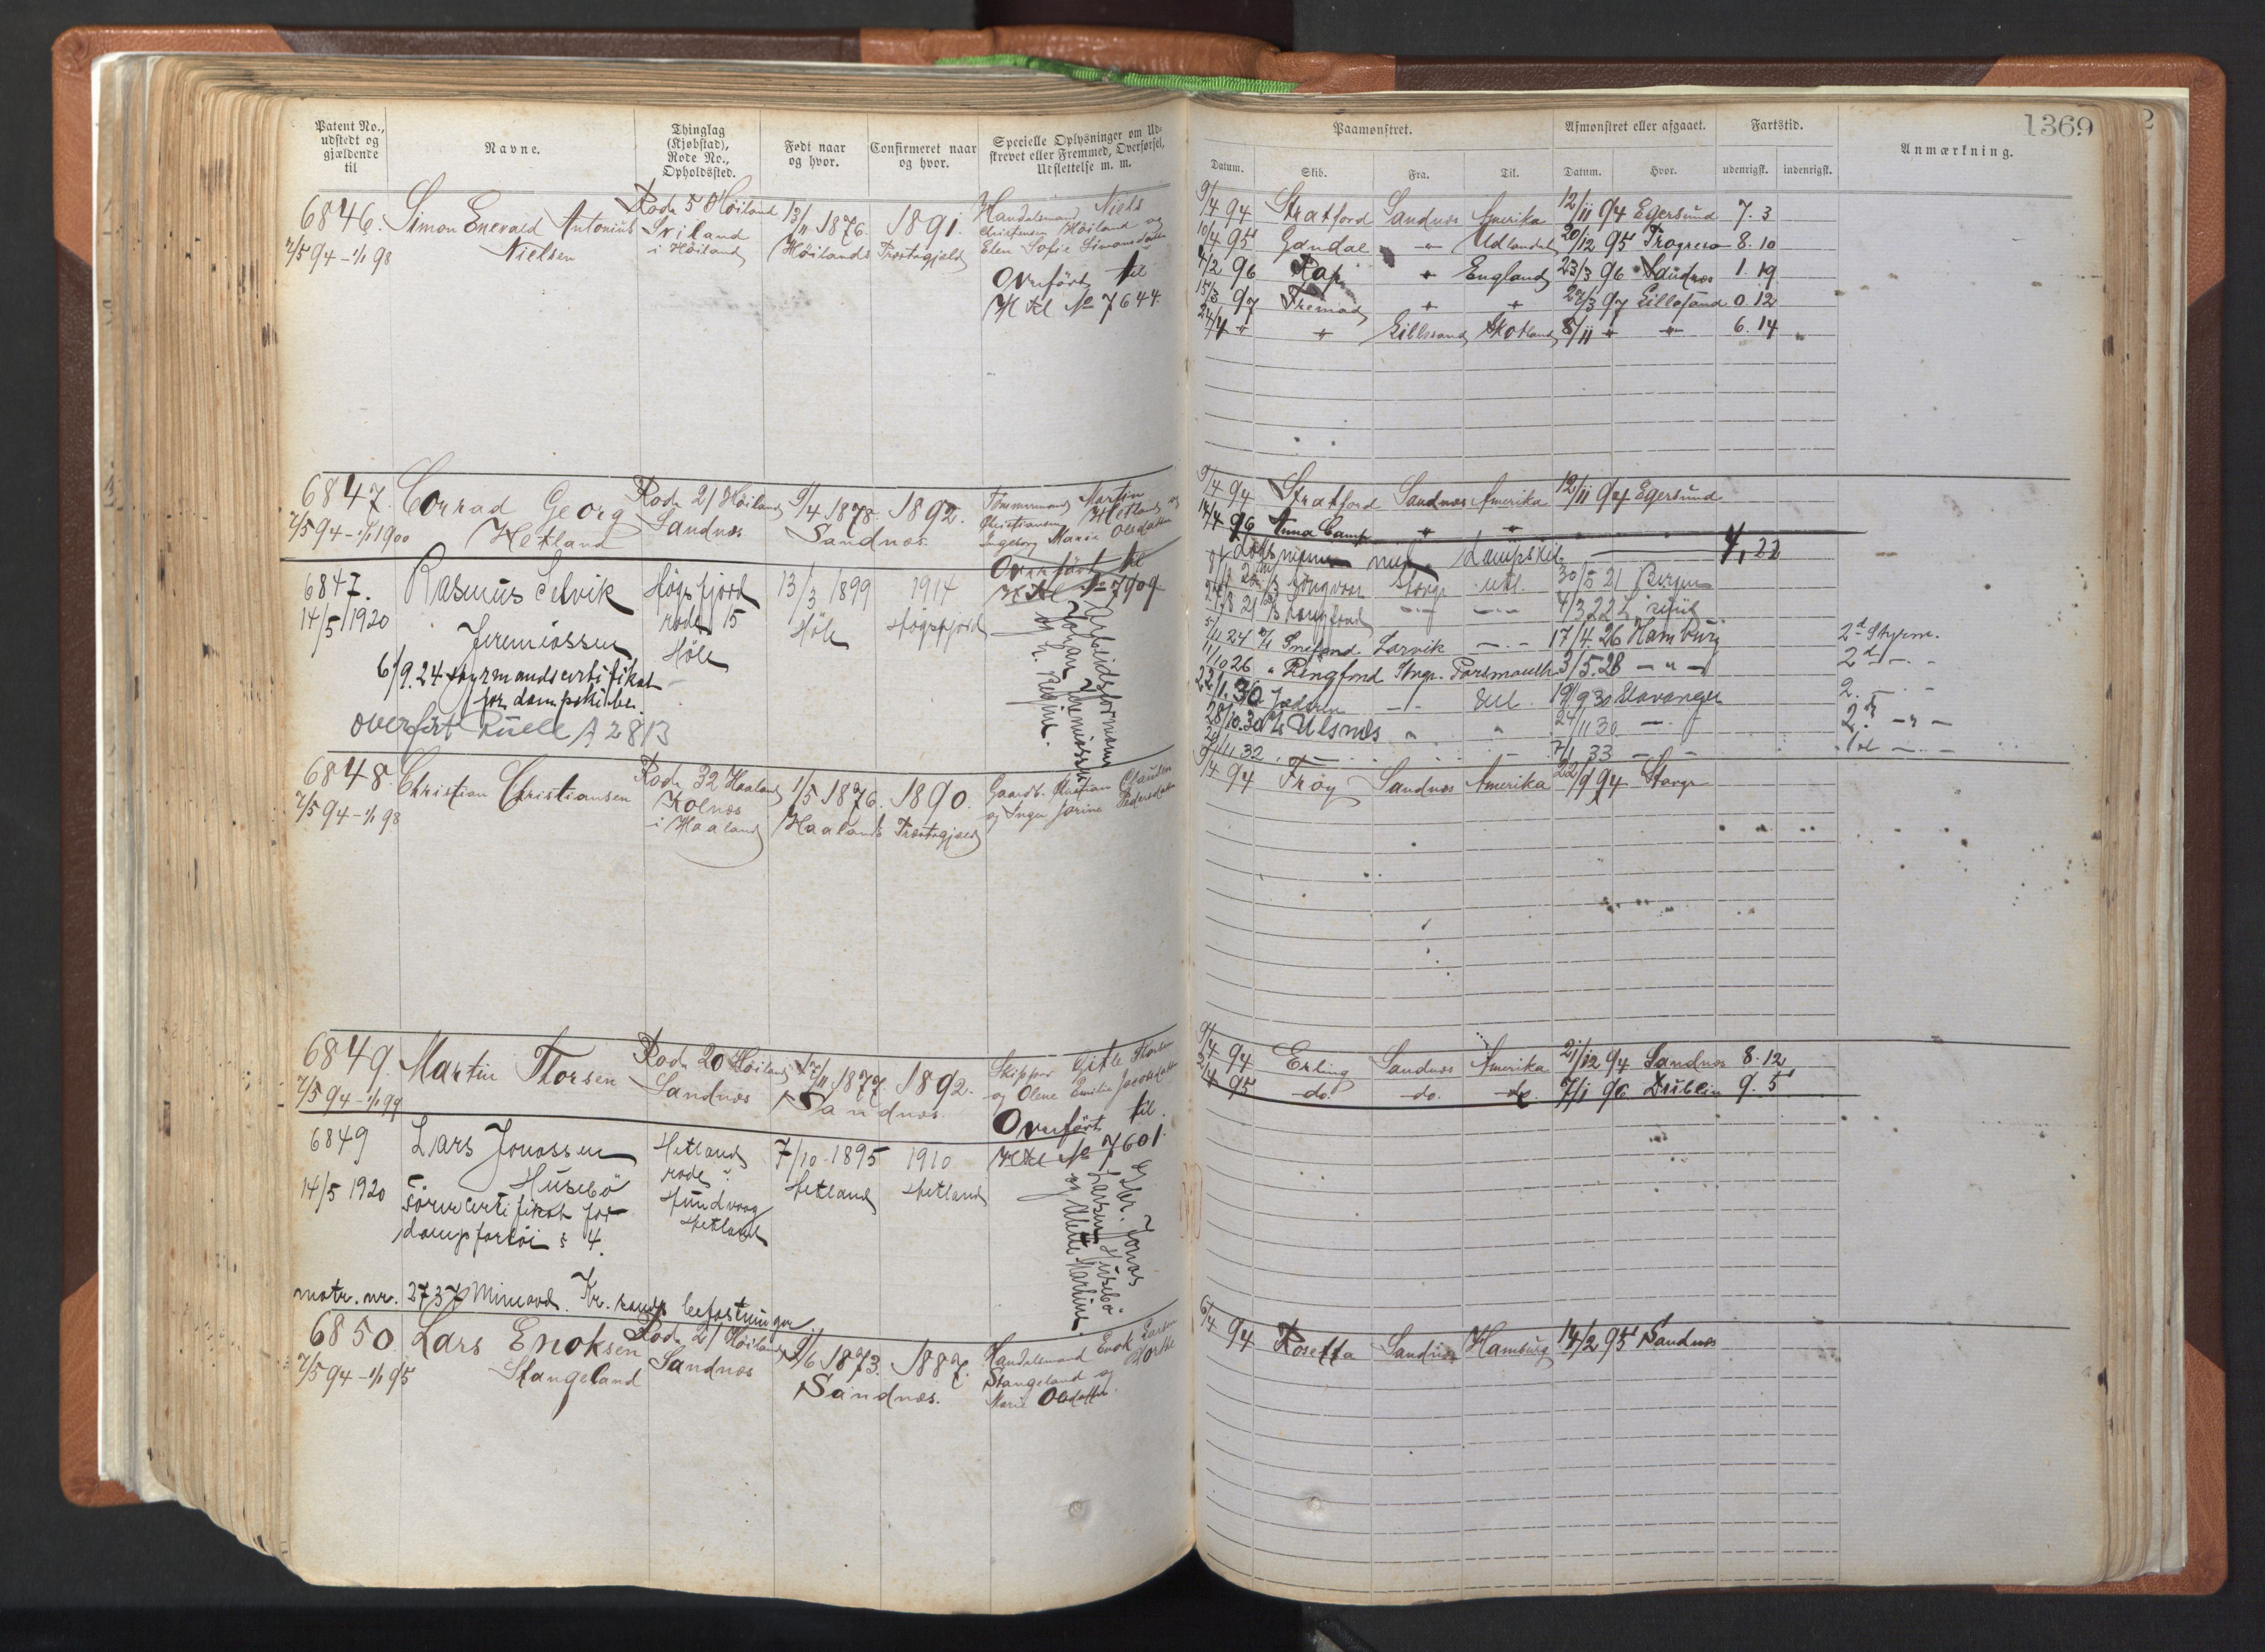 Patent No.,
udstedt og
gjældende
til
Navne.
Thinglag
(Kjøbstad),
Rode No.,
Opholdssted.
Født naar
og hvor.
Confirmeret naar
og hvor.
Specielle Oplysninger om Ud-
skrevet eller Fremmed, Overførsel,
Udslettelse m. m.
6846. Simon Enevald Antonius Rode 5 Høiland 13/11 1876. 1891. Handelsmand Niels
7/5 94 - 1/1 98 Nielsen Sviland i Høiland Høilands Præstegjeld Christensen Høiland og
Elen Sofie Simonsdatter
Overført til
H Kl No 7644.
6847. Conrad Georg Rode 21 Høiland 9/4 1878. 1892. Tømmermand Martin
7/5 94 - 1/1 1900 Hetland Sandnæs Sandnæs. Christiansen Hetland og
Ingeborg Marie Olsdatter
Overført til
H Kl No 7909
6847. Rasmus Selvik Høgsfjord 13/3 1899 1914
14/5 1920 Jeremiassen rode 15 Høle Høgsfjord
Høle
6/9.24 styrmandscertifikat
for dampskibe.
overført Rulle A 2813
Arbeidsformann
Johan Jeremiassen
og h. Regine.
6848. Christian Christiansen Rode 32 Haaland 1/5 1876. 1890. Gaardb. Christian Clausen
7/5 94 - 1/1 98 Kolnes i Haaland Haalands Præstegjeld og Inger Jorine Pedersdatter
6849. Martin Thorsen Rode 20 Høiland 17/11 1877. 1892. Skipper Gitle Thorsen
7/5 94 - 1/1 99 Sandnæs Sandnæs. og Olene Emilie Jacobsdatter
Overført til.
H Kl No 7601.
6849 Lars Jonassen Hetland 7/10 1895 1910
14/5 1920 Husebö rode Hetland Hetland
Hundvaag
Hetland
Förercertifikat for
dampfartöi § 4.
Gbr. Jonas
Larsen Husebö
og Marthine.
matr. nr. 2737 Mineavd. Kr.sands befæstninger.
6850. Lars Enoksen Rode 21 Høiland 9/6 1873. 1887. Handelsmand Enok Larsen
7/5 94 - 1/1 95 Stangeland Sandnæs Sandnæs. Stangeland og
Marie Olsdatter
1369
Paamønstret.
Afmønstret eller afgaaet.
Fartstid.
Anmærkning.
Datum. Skib. Fra. Til. Datum. Hvor. udenrigsk. indenrigsk.
9/4 94 Stratford Sandnæs Amerika 12/11 94 Egersund 7. 3
10/4 95 Gandal - " - Udlandet 20/12 95 Progreso 8. 10
4/2 96 Rap " England 23/3 96 Sandnæs 1. 19
15/3 97 Fremad " " 27/3 97 Lillesand 0. 12
24/4 " " Lillesand Skotland 8/11 " " 6. 14
9/4 94 Stratford Sandnæs Amerika 12/11 94 Egersund
14/4 96 Anna Camp " "
30/5 21 Bergen
4/3 22
5/11 24 Larvik 17/4. 26 Hamburg 2d Styrm.
11/10 26 " Ringfond Stvgr. Portsmouth 3/5. 28 - " - 2d - " -
22/1. 30 Jæderen Utl. 19/9 30 Stavanger 2. - " -
28/10.30 Ulsnes " " 24/11 30 - " - 2d - " -
11 32 7/1 33 - " - 1st - " -
9/4 94 Frøy Sandnæs Amerika 22/9 94 Stavgr
9/4 94 Erling Sandnæs Amerika 21/12 94 Sandnæs 8. 12
2/4 95 do. do. do. 7/1 96 Dublin 9. 5
6/4 94 Rosetta Sandnæs Hamburg 14/2 95 Sandnæs